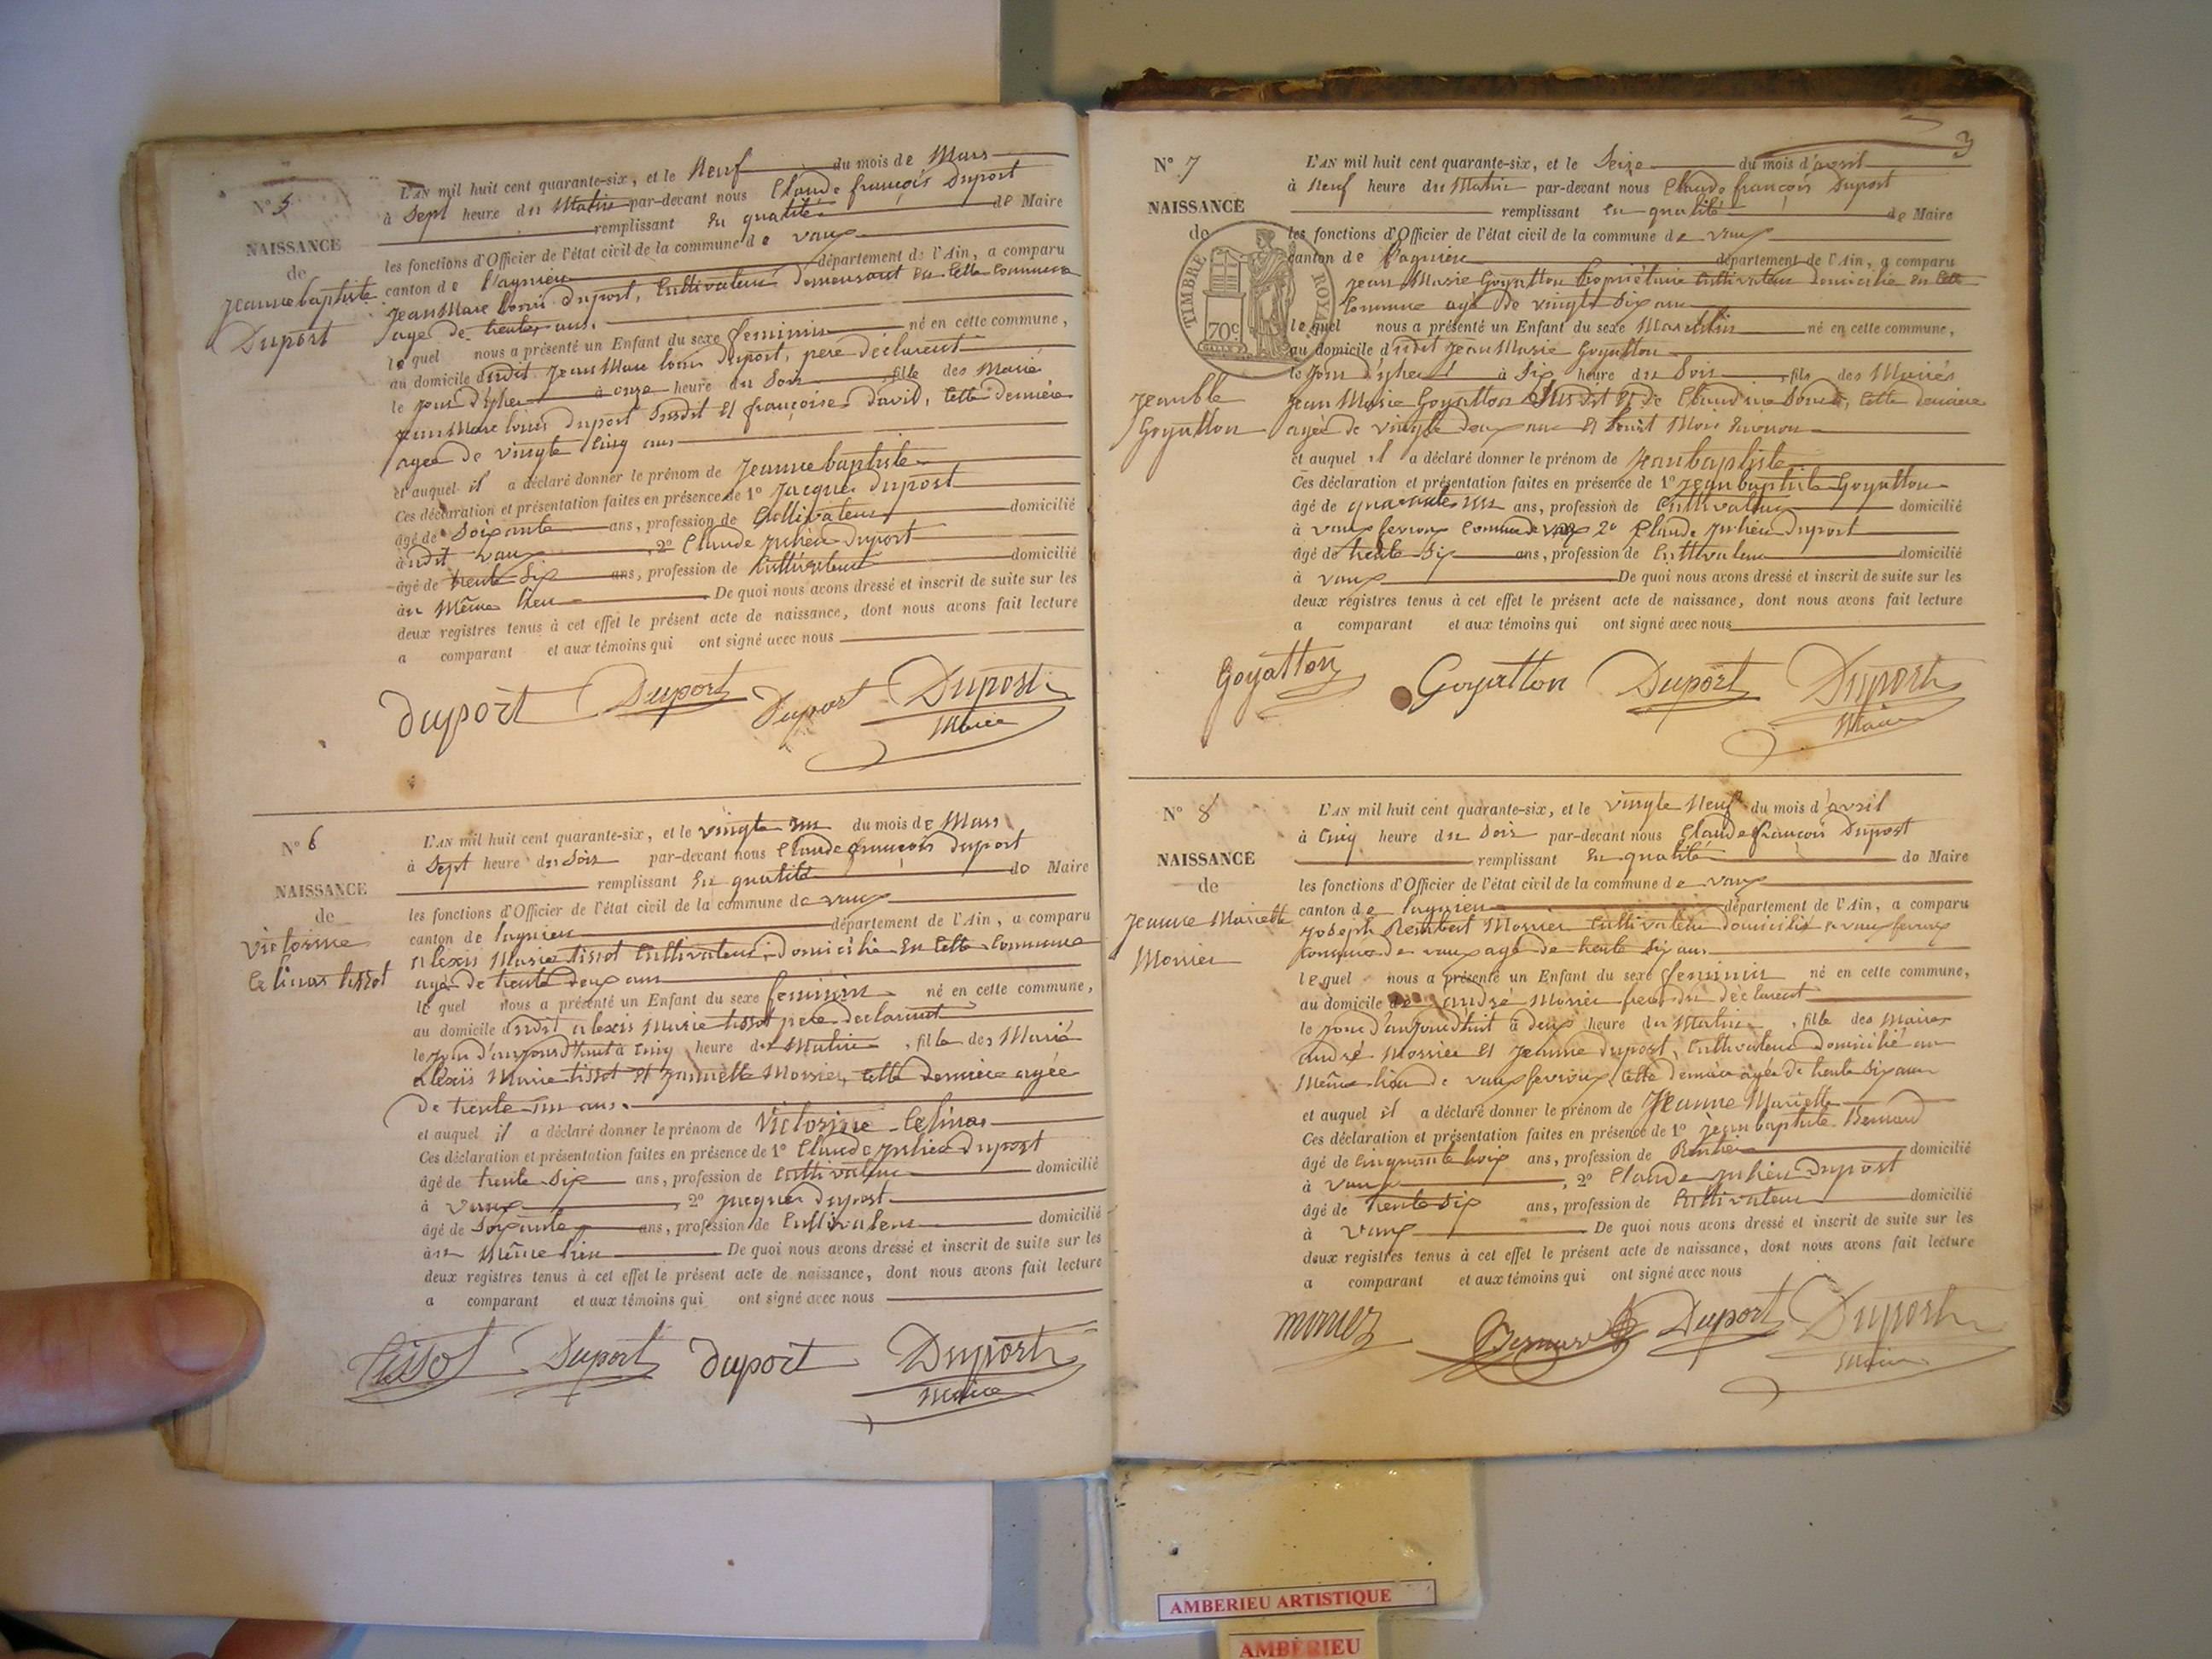 N° 5
NAISSANCE
de
Jeanne baptiste
Duport
L'AN mil huit cent quarante-six, et le Neuf du mois de Mars
à Sept heure du Matin par-devant nous Claude françois Duport
remplissant en qualité de Maire
les fonctions d'Officier de l'état civil de la commune de vaux
canton de Lagnieu département de l'Ain, a comparu
Jean Marc Louis duport, Cultivateur demeurant en Cette Commune
agé de trente ans.
lequel nous a présenté un Enfant du sexe feminin né en cette commune,
au domicile dudit Jean Marc Louis duport, pere declarent
le jour d'yher à onze heure du Soir fille des Marié
Jean Marc Louis duport Susdit et françoise david, Cette derniere
agée de vingte Cinq ans
et auquel il a déclaré donner le prénom de Jeanne baptiste
Ces déclaration et présentation faites en présence de 1° Jacques duport
âgé de Soixante ans, profession de Cultivateur domicilié
à udit vaux, 2° Claude Julien duport
âgé de trente Six ans, profession de Cultivateur domicilié
àu Même Lieu De quoi nous avons dressé et inscrit de suite sur les
deux registres tenus à cet effet le présent acte de naissance, dont nous avons fait lecture
a comparant et aux témoins qui ont signé avec nous
duport Duport Duport Duport
Maire
N° 6
NAISSANCE
de
Victorine
Celinas tissot
L'AN mil huit cent quarante-six, et le vingte un du mois de Mars
à Sept heure du Soir par-devant nous Claude françois duport
remplissant en qualité de Maire
les fonctions d'Officier de l'état civil de la commune de vaux
canton de lagnieu département de l'Ain, a comparu
alexis Marie tissot Cultivateur, domicilié en Cette Commune
agé de trente deux ans
lequel nous a présenté un Enfant du sexe feminin né en cette commune,
au domicile dudit alexis Marie tissot pere declarent
le jour d'aujourd'huit à Cinq heure du Matin, fille des Marié
alexis Marie tissot et Mornier, Cette Derniere agée
de trente un ans.
et auquel il a déclaré donner le prénom de Victorine Celinas
Ces déclaration et présentation faites en présence de 1° Claude Julien Duport
âgé de trente Six ans, profession de Cultivateur domicilié
à vaux, 2° Jacques duport
âgé de Soixante ans, profession de Cultivateur domicilié
àu Même Lieu De quoi nous avons dressé et inscrit de suite sur les
deux registres tenus à cet effet le présent acte de naissance, dont nous avons fait lecture
a comparant et aux témoins qui ont signé avec nous
tissot Duport duport Duport
Maire
3
N° 7
NAISSANCE
de
TIMBRE ROYAL
70 c
Jean Bte
Goyatton
L'AN mil huit cent quarante-six, et le Seize du mois d'avril
à Neuf heure du Matin par-devant nous Claude françois Duport
remplissant en qualité de Maire
les fonctions d'Officier de l'état civil de la commune de vaux
canton de Lagnieu département de l'Ain, a comparu
Jean Marie Goyatton Propriétaire Cultivateur domicilié en Cette
Commune agé de vingt Six ans
lequel nous a présenté un Enfant du sexe Masculin né en cette commune,
au domicile dudit Jean Marie Goyatton
le jour d'yher à Six heure du Soir, fils des Mariés
Jean Marie Goyatton Susdit et de Claudine, Cette derniere
agée de vingte deux ans et huit Mois Environ
et auquel il a déclaré donner le prénom de Jean baptiste
Ces déclaration et présentation faites en présence de 1° Jean baptiste Goyatton
âgé de quarante un ans, profession de Cultivateur domicilié
à vaux fevroux Commune de vaux 2° Claude Julien duport
âgé de trente Six ans, profession de Cultivateur domicilié
à vaux De quoi nous avons dressé et inscrit de suite sur les
deux registres tenus à cet effet le présent acte de naissance, dont nous avons fait lecture
a comparant et aux témoins qui ont signé avec nous
Goyatton Goyatton Duport Duport
Maire
N° 8
NAISSANCE
de
Jeanne Mariette
Mornier
L'AN mil huit cent quarante-six, et le vingte Neuf du mois d'avril
à Cinq heure du Soir par-devant nous Claude françois Duport
remplissant en qualité de Maire
les fonctions d'Officier de l'état civil de la commune de vaux
canton de lagnieu département de l'Ain, a comparu
Joseph Rembert Mornier Cultivateur domicilié a vaux fevroux
Commune de vaux agé de trente Six ans
lequel nous a présenté un Enfant du sexe feminin né en cette commune,
au domicile de andré Mornier du déclarent
le jour d'aujourd'huit à deux heure du Matin, fille des Maries
andré Mornier et Jeanne duport, Cultivateur domicilié au
même lieu de vaux fevroux, Cette derniere agée de trente Six ans
et auquel il a déclaré donner le prénom de Jeanne Mariette
Ces déclaration et présentation faites en présence de 1° Jean baptiste Bernard
âgé de Cinquante ans, profession de Rentier domicilié
à vaux, 2° Claude Julien Duport
âgé de trente Six ans, profession de Cultivateur domicilié
à vaux De quoi nous avons dressé et inscrit de suite sur les
deux registres tenus à cet effet le présent acte de naissance, dont nous avons fait lecture
a comparant et aux témoins qui ont signé avec nous
Bernard Duport Duport
Maire
AMBERIEU ARTISTIQUE
AMBÉRIEU